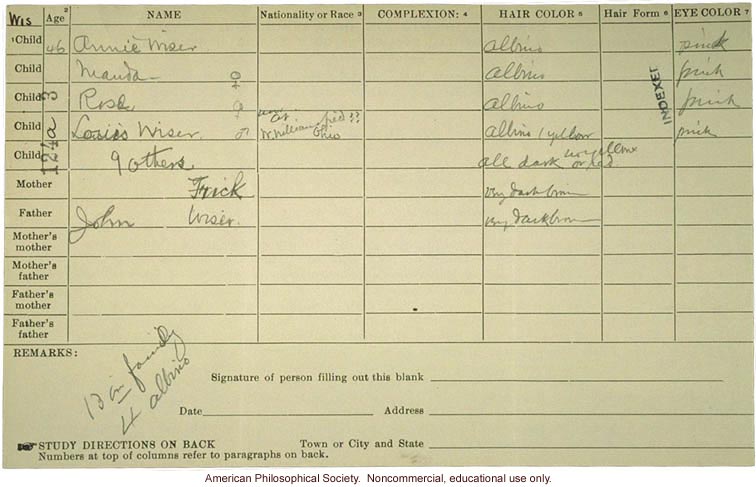 Wis
Age 2 NAME Nationality or Race 3 COMPLEXION: 4 HAIR COLOR 5 Hair Form 6 EYE COLOR 7
1 Child 46 Annie Wiser albino pink
Child Manda ♀ albino pink
Child Rose ♀ albino pink
Child Louis Wiser. ♂ Ohio albino / yellow pink
Child 9 others all dark or red.
Mother Frick very dark brown
Father John Wiser. very dark brown
Mother's mother
Mother's father
Father's mother
Father's father
124a 3
INDEXED
REMARKS:
13 in family
4 albino
Signature of person filling out this blank
Date Address
STUDY DIRECTIONS ON BACK Town or City and State
Numbers at top of columns refer to paragraphs on back.
American Philosophical Society. Noncommercial, educational use only.